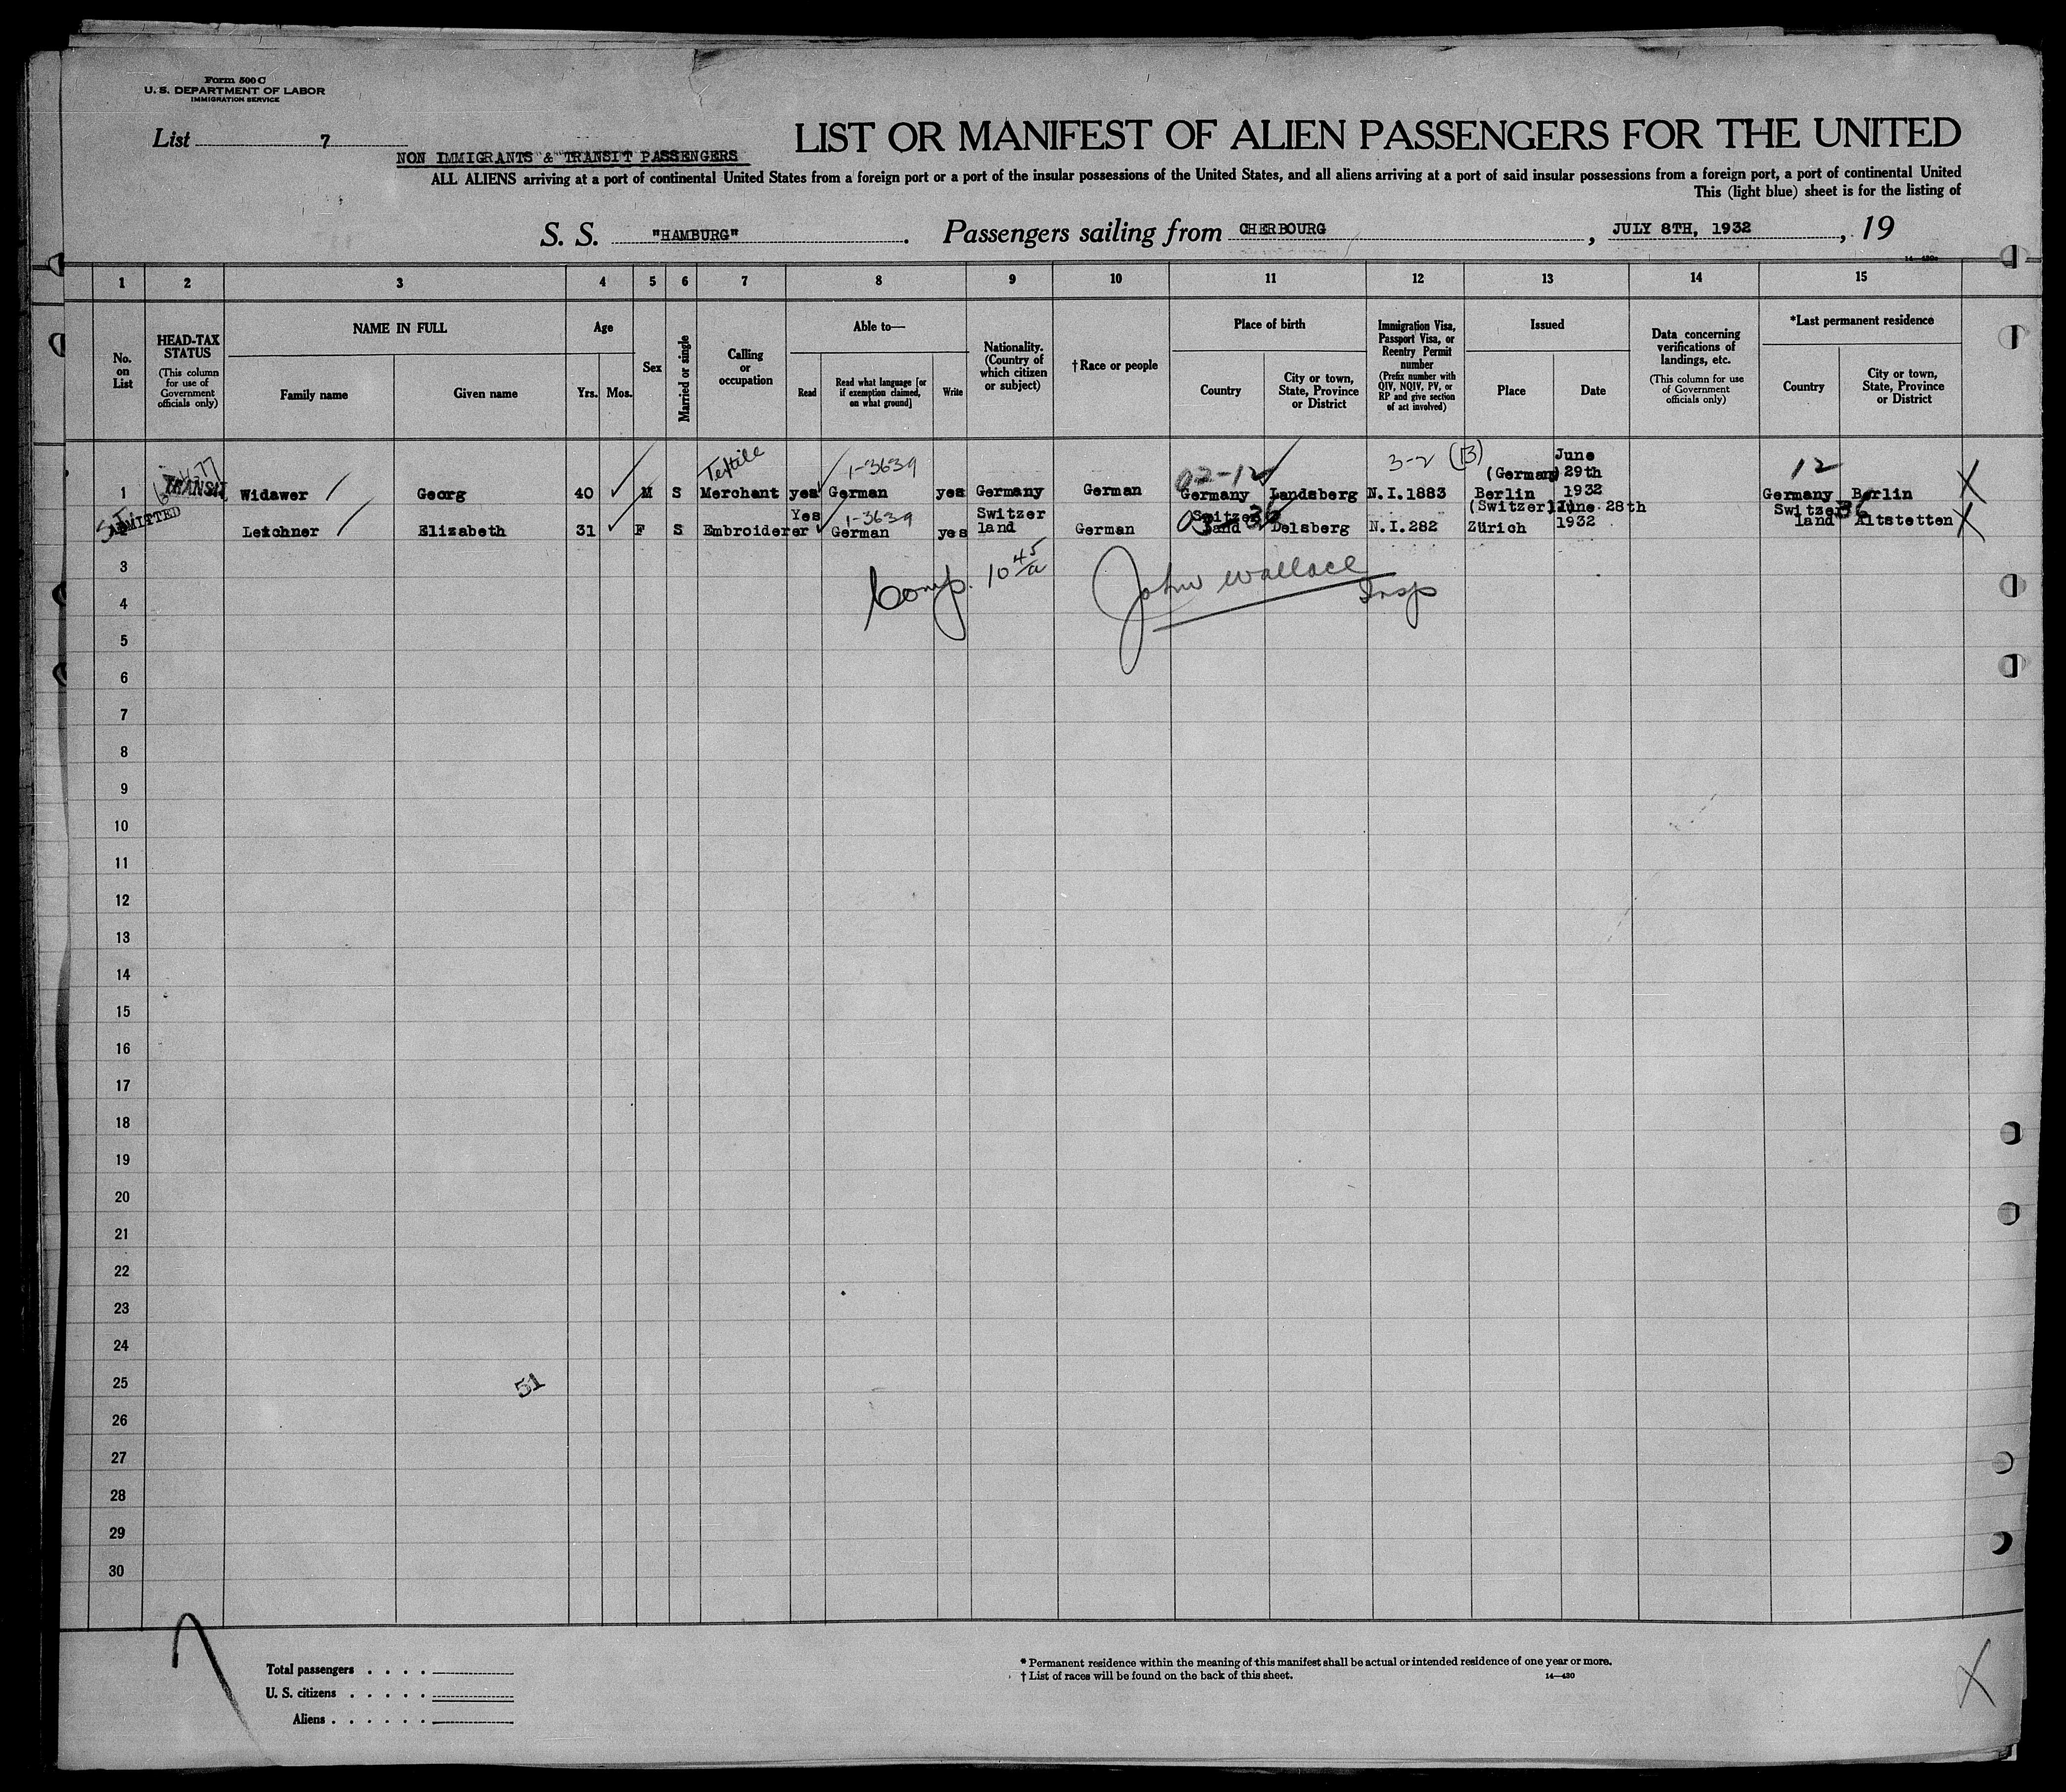 Form 500 C
U. S. DEPARTMENT OF LABOR
IMMIGRATION SERVICE
List 7
NON IMMIGRANTS & TRANSIT PASSENGERS
LIST OR MANIFEST OF ALIEN PASSENGERS FOR THE UNITED
ALL ALIENS arriving at a port of continental United States from a foreign port or a port of the insular possessions of the United States, and all aliens arriving at a port of said insular possessions from a foreign port, a port of continental United
This (light blue) sheet is for the listing of
S. S. "HAMBURG". Passengers sailing from CHERBOURG, JULY 8TH, 1932, 19
1 2 3 4 5 6 7 8 9 10 11 12 13 14 15
No. on List
HEAD-TAX STATUS (This column for use of Government officials only)
NAME IN FULL
Family name
Given name
Age
Yrs. Mos.
Sex
Married or single
Calling or occupation
Able to—
Read
Read what language [or if exemption claimed, on what ground]
Write
Nationality. (Country of which citizen or subject)
†Race or people
Place of birth
Country
City or town, State, Province or District
Immigration Visa, Passport Visa, or Reentry Permit number (Prefix number with QIV, NQIV, PV, or RP and give section of act involved)
Issued
Place
Date
Data concerning verifications of landings, etc. (This column for use of Government officials only)
*Last permanent residence
Country
City or town, State, Province or District
Textile 1-3639 02-12 3-2 (13) 12
1 TRANSIT Widawer Georg 40 M S Merchant yes German yes Germany German Germany Landsberg N.I.1883 (Germany) Berlin June 29th 1932 Germany Berlin X
ADMITTED Leichner Elizabeth 31 F S Embroiderer Yes 1-3639 German yes Switzer land German Switzer land Delsberg N.I.282 (Switzerl) Zürich June 28th 1932 Switzer land 36 Altstetten X
3
Comp. 10 45/a John Wallace Insp
4
5
6
7
8
9
10
11
12
13
14
15
16
17
18
19
20
21
22
23
24
25
51
26
27
28
29
30
Total passengers . . . .
U. S. citizens . . . . .
Aliens . . . . . .
* Permanent residence within the meaning of this manifest shall be actual or intended residence of one year or more.
† List of races will be found on the back of this sheet. 14—430
X